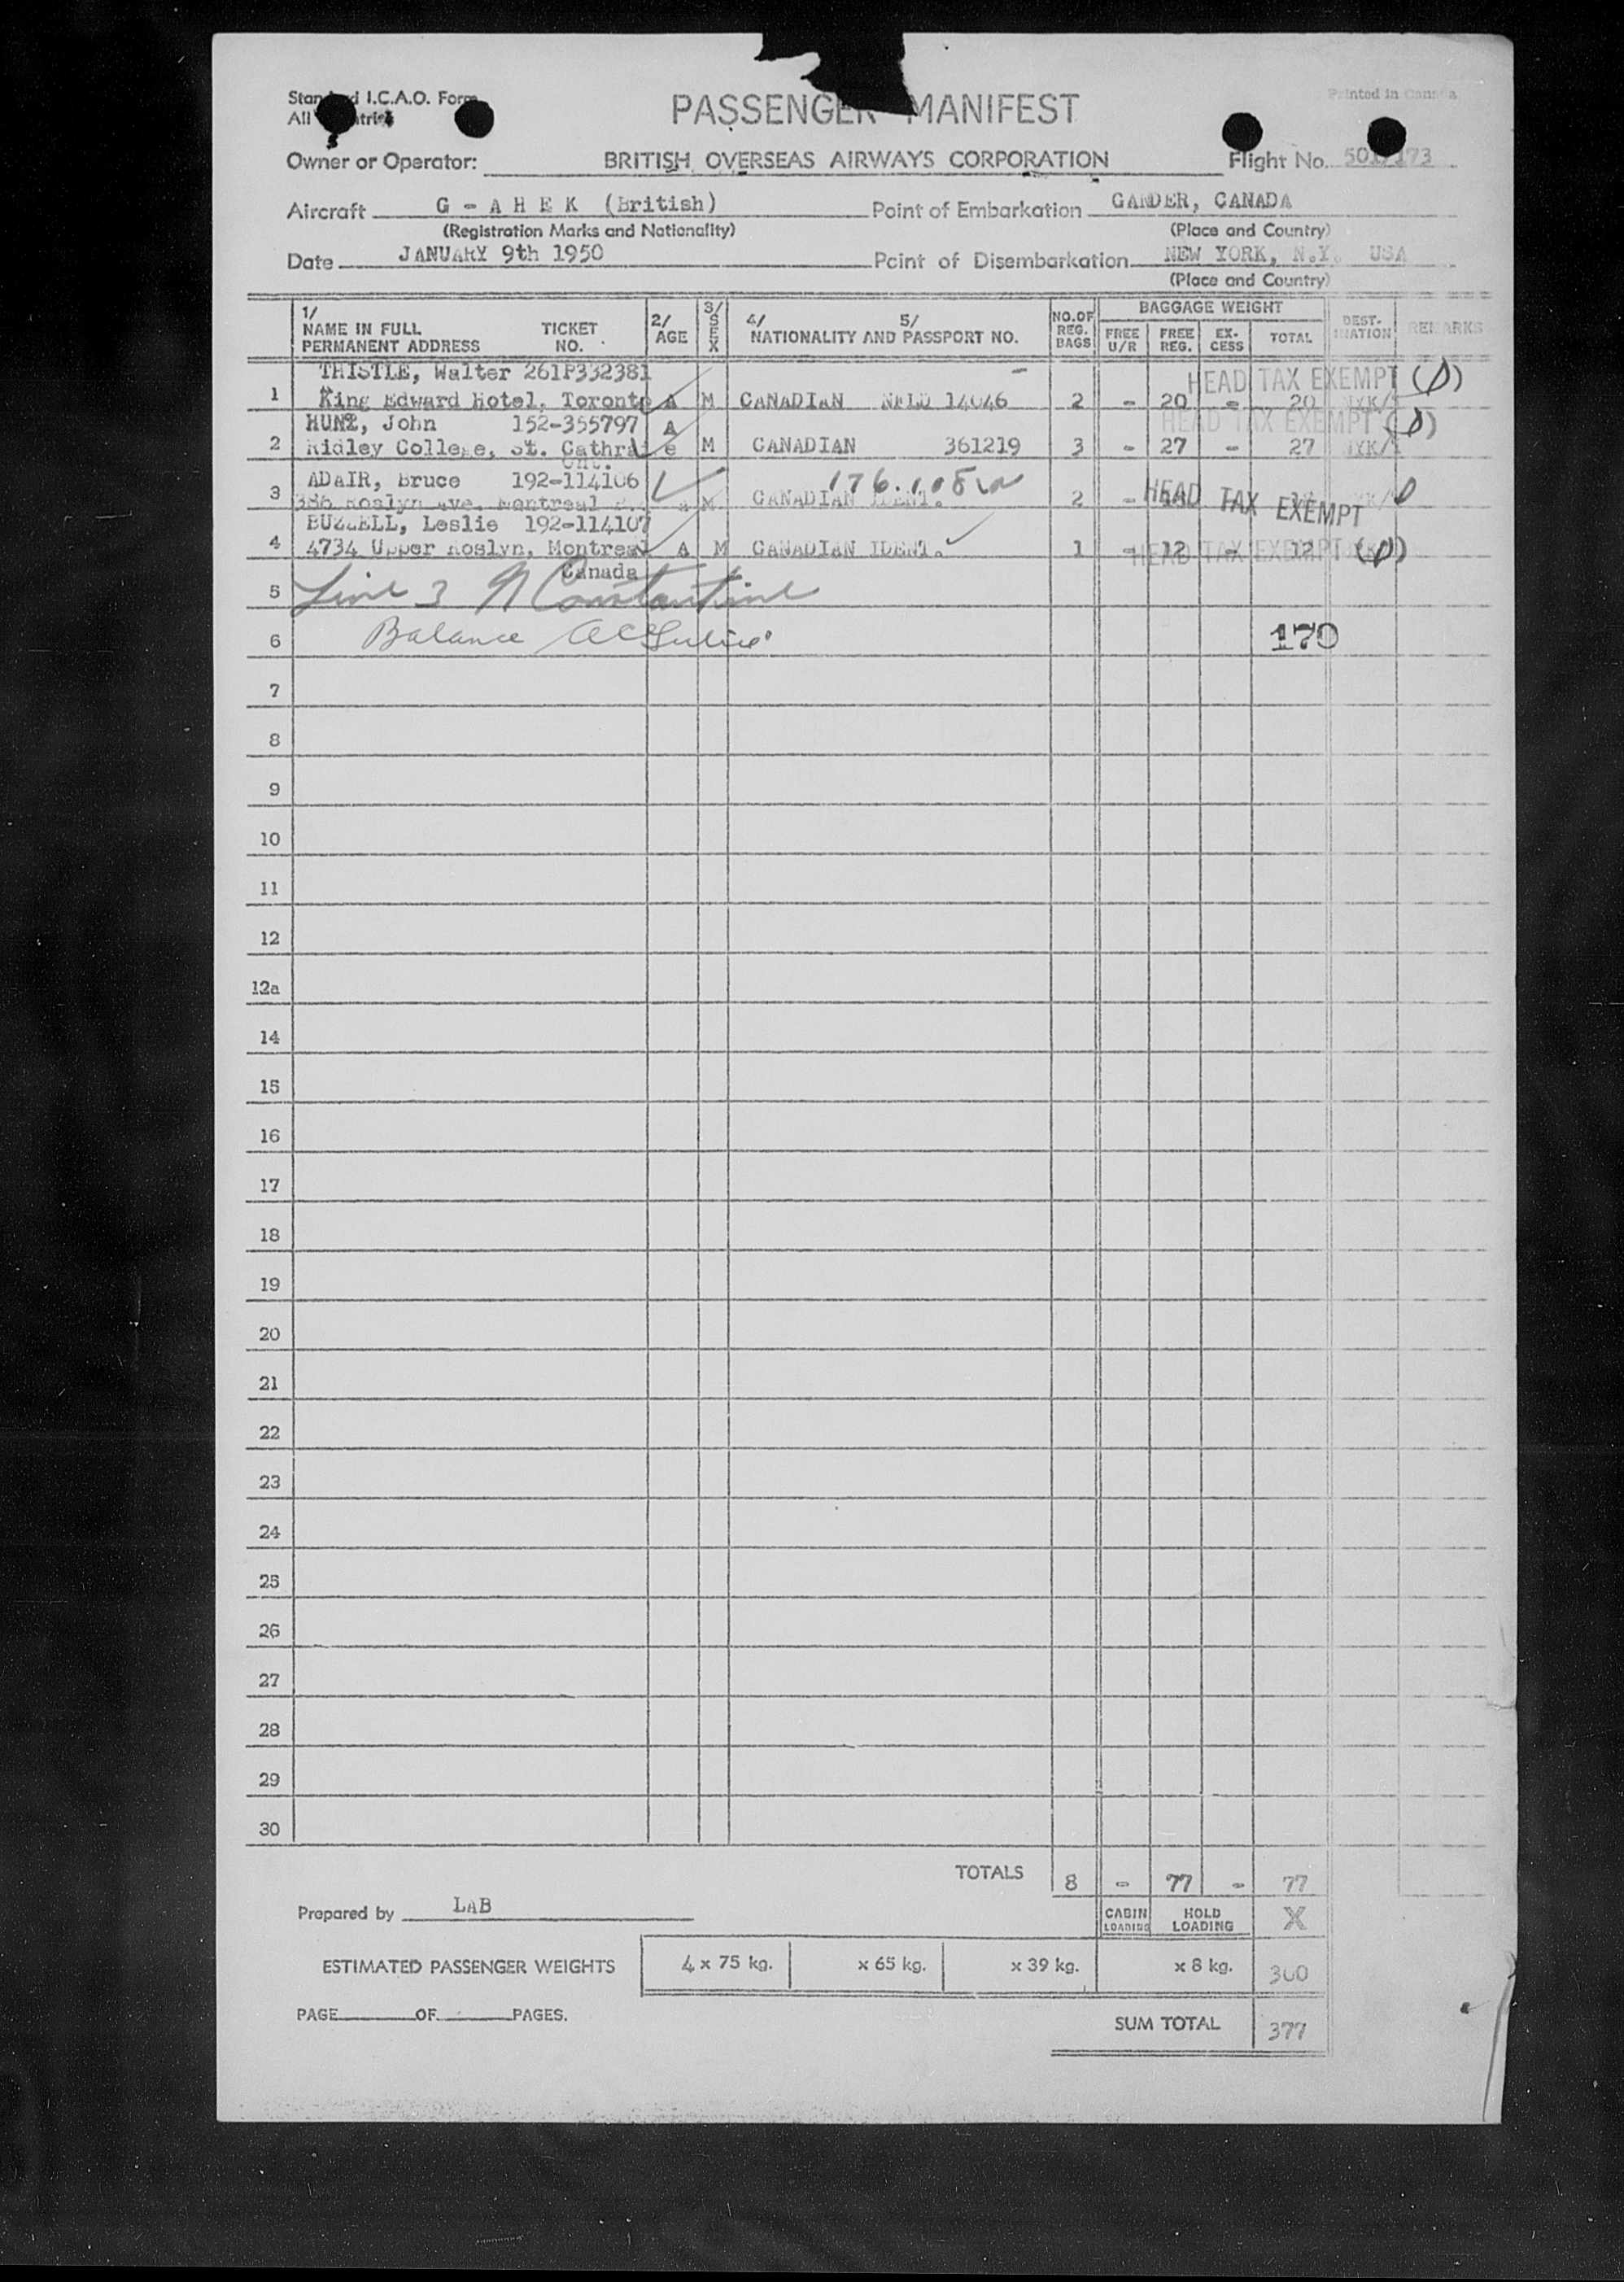 Standard I.C.A.O. Form
Printed in Canada
All
PASSENGER MANIFEST
Owner or Operator: BRITISH OVERSEAS AIRWAYS CORPORATION Flight No. 501/173
Aircraft G - A H E K (British) Point of Embarkation GANDER, CANADA
(Registration Marks and Nationality) (Place and Country)
Date JANUARY 9th 1950 Point of Disembarkation NEW YORK, N.Y. USA
(Place and Country)
1/ NAME IN FULL PERMANENT ADDRESS TICKET NO. 2/ AGE 3/ SEX 4/ 5/ NATIONALITY AND PASSPORT NO. NO. OF REG. BAGS BAGGAGE WEIGHT FREE U/R FREE REG. EX-CESS TOTAL DEST-INATION REMARKS
THISTLE, Walter 261P332381 HEAD TAX EXEMPT
1 King Edward Hotel, Toronto A M CANADIAN NFLD 14046 2 - 20 - 20
John 152-355797 A HEAD TAX EXEMPT
2 Ridley College, St. M CANADIAN 361219 3 - 27 - 27
Ont.
ADAIR, Bruce 192-114106
3 386 Roslyn Ave. Montreal M CANADIAN IDENT. 2 - HEAD TAX EXEMPT
BUZZELL, Leslie 192-114107
4 4734 Upper Roslyn, Montreal A M CANADIAN IDENT. 1 - 12 - 12 HEAD TAX EXEMPT
Canada
5 Line 3 Constantine
6 Balance 170
7
8
9
10
11
12
12a
14
15
16
17
18
19
20
21
22
23
24
25
26
27
28
29
30
TOTALS 8 - 77 - 77
Prepared by LAB CABIN LOADING HOLD LOADING X
ESTIMATED PASSENGER WEIGHTS 4 x 75 kg. x 65 kg. x 39 kg. x 8 kg. 300
PAGE OF PAGES.
SUM TOTAL 377